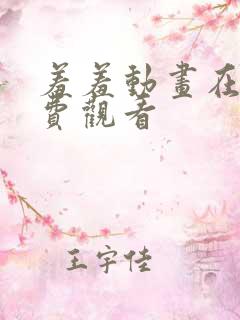 羞羞動畫在
費觀看
王宇佳